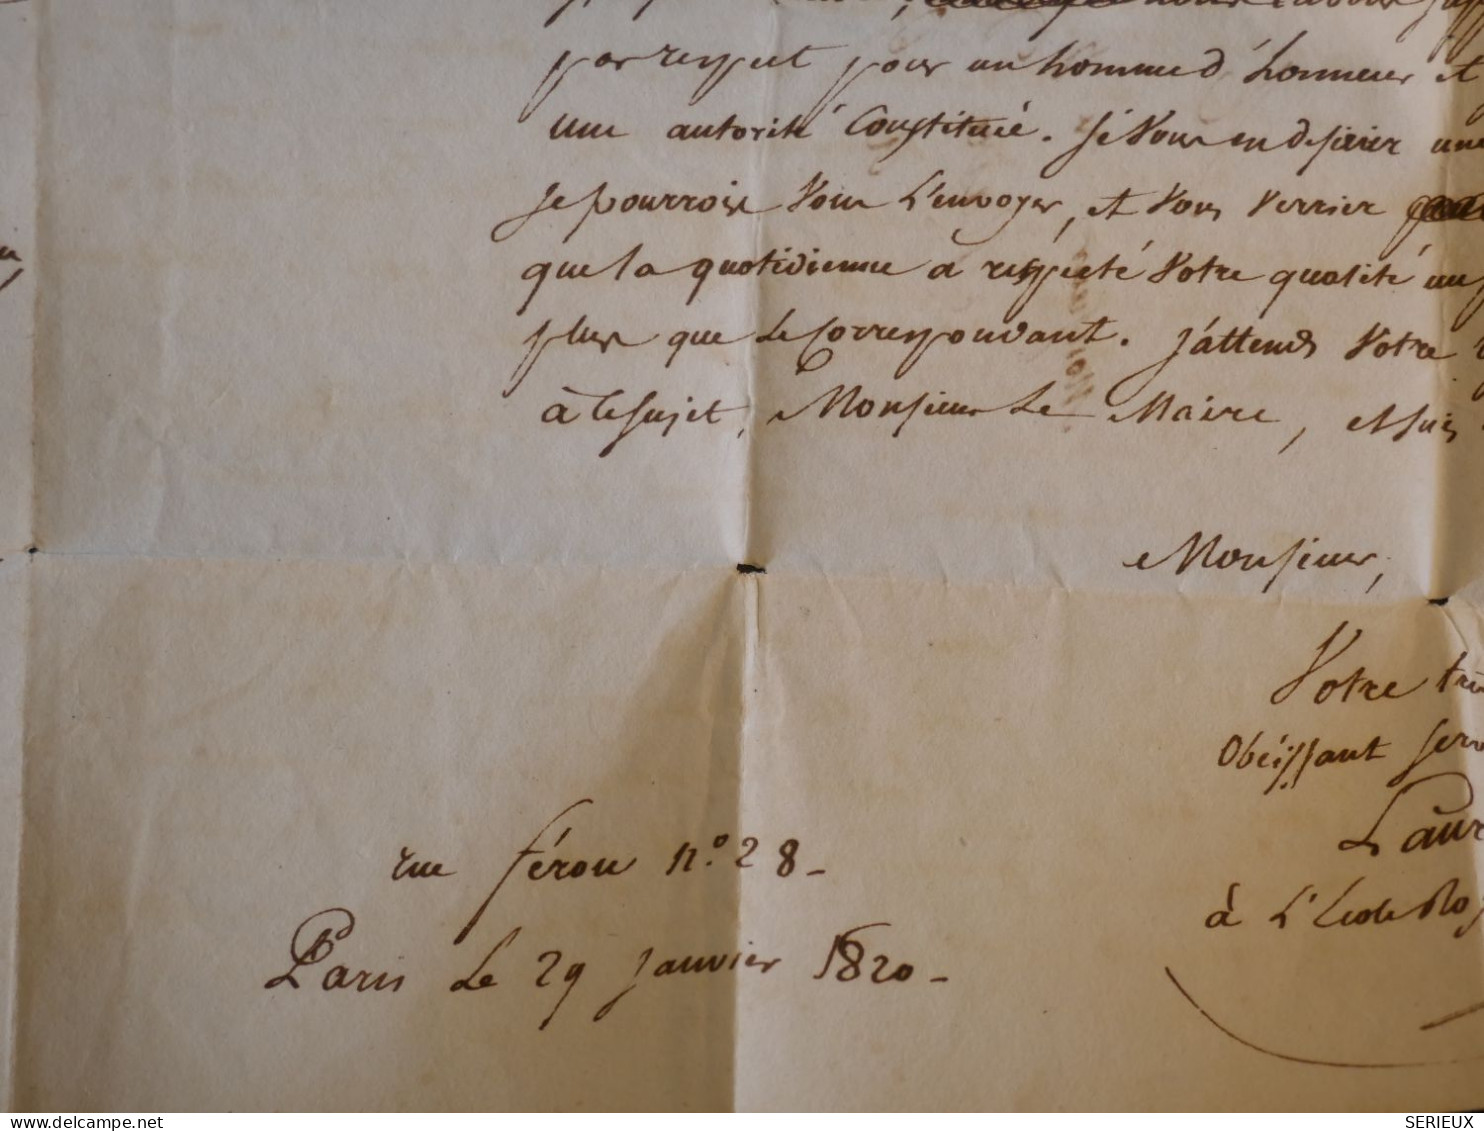 par respect pour un homme d'honneur et
une autorité Constituée. Si vous en desiriez une
Je pourrois vous l'envoyer, et vous verriez
que la quotidienne a respecté votre qualité un
plus que le Correspondant. J'attends votre
à ce sujet, Monsieur Le Maire, et suis
Monsieur,
Votre très
Obéissant serv
Laur
à L'Ecole Roy
rue férou n.o 28 -
Paris Le 29 janvier 1820 -
SERIEUX